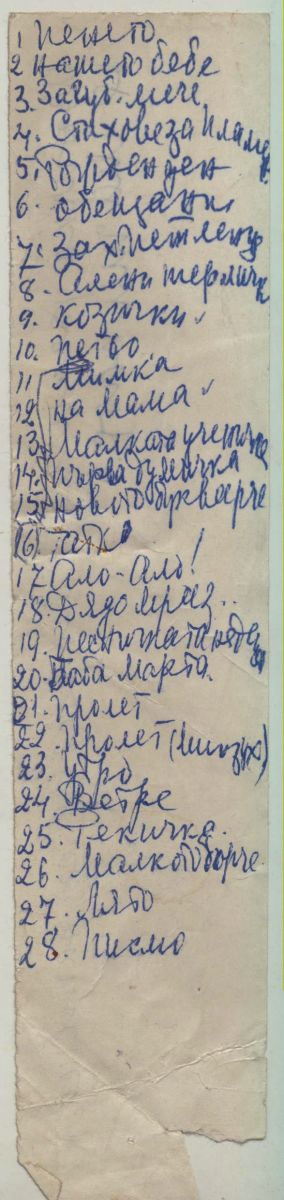 1 Пенето
2 Нашето бебе
3. Загуб. мече
4. Стихове за Пламен
5. Първи ден
6. Обещани
7. Зах. петленце
8. Алени терлички
9. Козички
10. Петьо
11 Мимка
12 На мама
13. Малката ученичка
14. Първа думичка
15. Новото букварче
16. Татко
17 Ало-Ало!
18. Дядо Мраз..
19. Песничката на
20. Баба Марта.
21. Пролет
22. Пролет
23. Утро
24. Ветре
25. Текичка.
26. Малкото борче.
27. Лято
28. Писмо